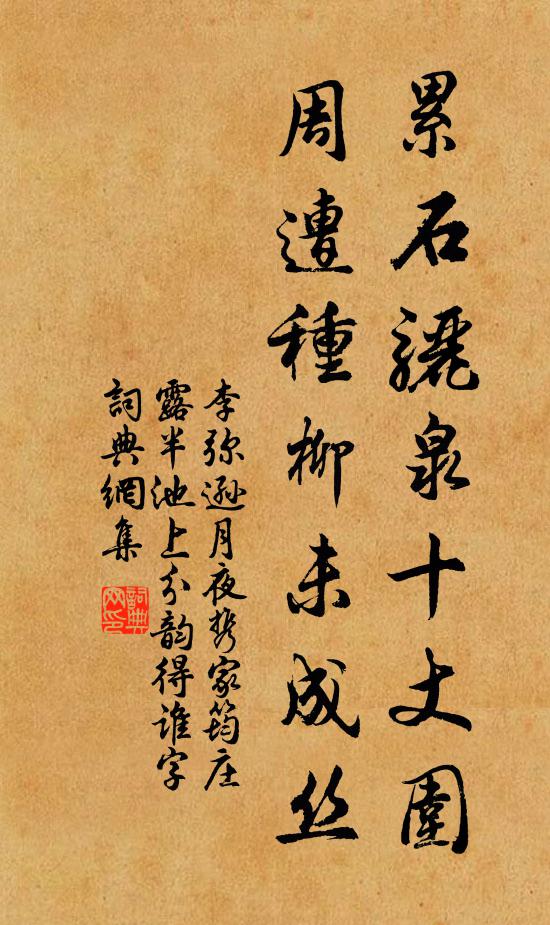 累石驪泉十丈圍
周遭種柳未成丝
李弥遜月夜携家筠庄
露半池上分韵得誰字
詞典網集
詞典网印